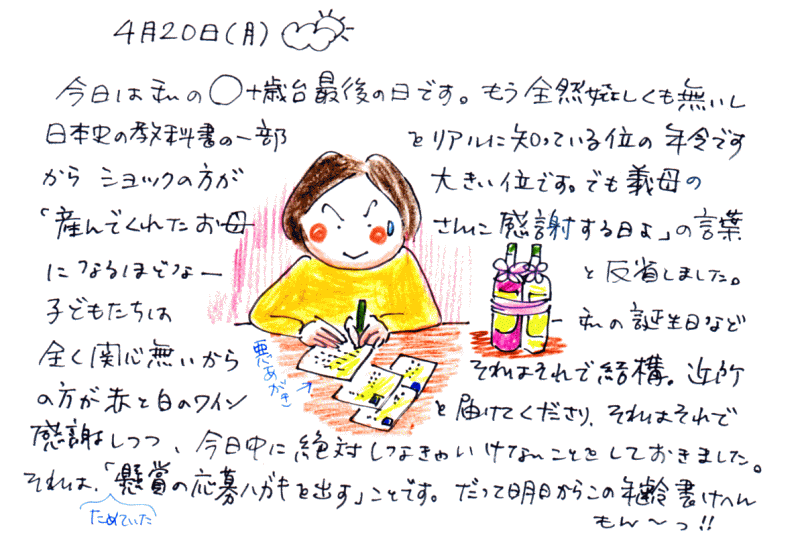 4月20日(月)
今日は私の〇十歳台最後の日です。もう全然嬉しくも無いし
日本史の教科書の一部をリアルに知っている位の年令です
から ショックの方が大きい位です。でも義母の
「産んでくれたお母さんに感謝する日よ」の言葉
になるほどなーと反省しました。
子どもたちは私の誕生日など
全く関心無いからそれはそれで結構。近所
の方が赤と白のワインを届けてくださり、それはそれで
感謝しつつ、今日中に絶対しなきゃいけないことをしておきました。
それは、「懸賞の応募ハガキを出す」ことです。だって明日からこの年齢書けへん
もん〜っ!!
ためていた
悪あがき